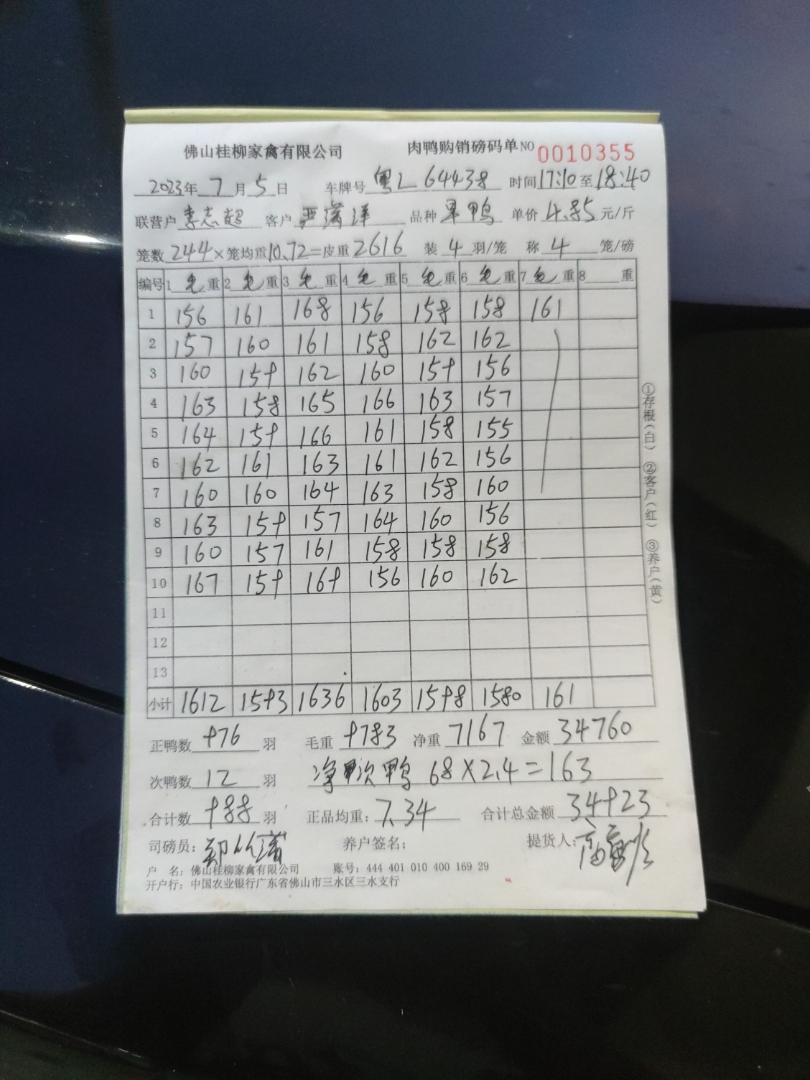 佛山桂柳家禽有限公司 肉鸭购销磅码单 NO 0010355
2023年7月5日 车牌号 粤L 64438 时间 17:10 至 18:40
联营户 李志超 客户 品种 单价 4.85 元/斤
笼数 244 × 笼均重 10.72 = 皮重 2616 装 4 羽/笼 称 4 笼/磅
编号 1 毛重 2 毛重 3 毛重 4 毛重 5 毛重 6 毛重 7 毛重 8 重
1 156 161 168 156 158 158 161
2 157 160 161 158 162 162
3 160 159 162 160 159 156
4 163 158 165 166 163 157
5 164 159 166 161 158 155
6 162 161 163 161 162 156
7 160 160 164 163 158 160
8 163 159 157 164 160 156
9 160 157 161 158 158 158
10 167 159 169 156 160 162
11
12
13
小计 1612 1593 1636 1603 1598 1580 161
①存根(白) ②客户(红) ③养户(黄)
正鸭数 976 羽 毛重 9783 净重 7167 金额 34760
次鸭数 12 羽 净次鸭 68×2.4=163
合计数 988 羽 正品均重: 7.34 合计总金额 34923
司磅员: 养户签名: 提货人:
户 名: 佛山桂柳家禽有限公司 账号: 444 401 010 400 169 29
开户行: 中国农业银行广东省佛山市三水区三水支行